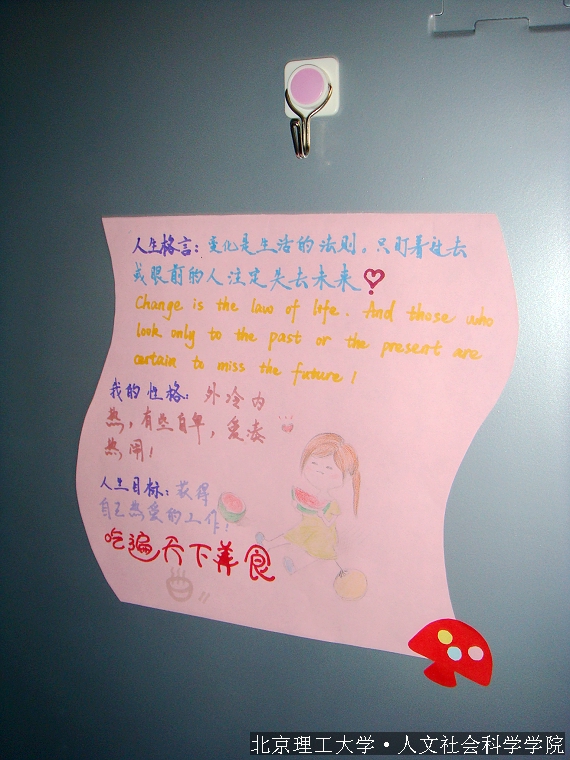 人生格言：变化是生活的法则。只盯着过去
或眼前的人注定失去未来
Change is the law of life. And those who
look only to the past or the present are
certain to miss the future!
我的性格：外冷内
热，有些自卑，爱凑
热闹！
人生目标：获得
自己热爱的工作！
吃遍天下美食
北京理工大学·人文社会科学学院